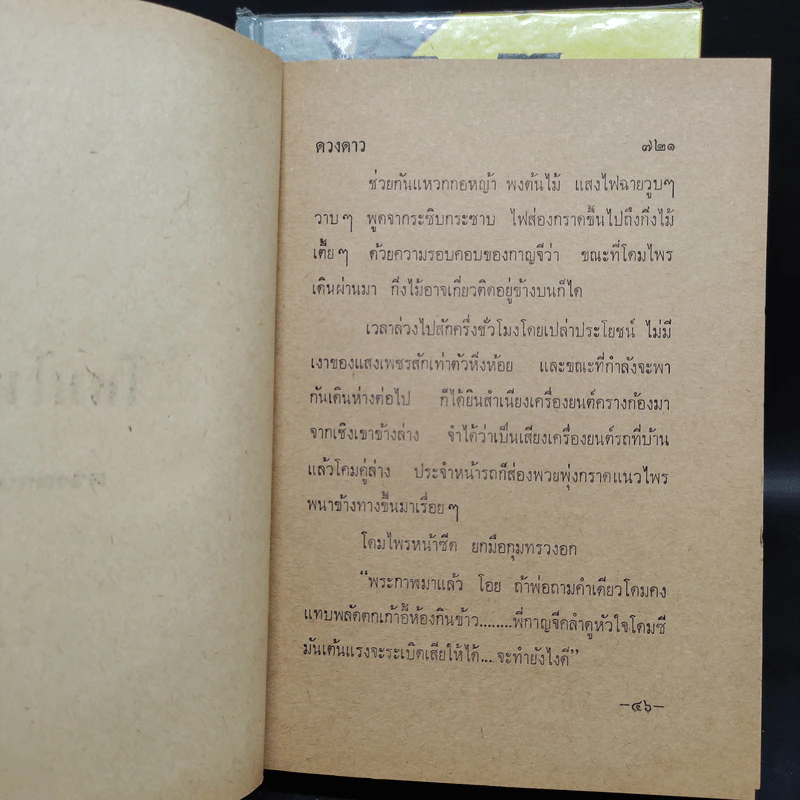 ดวงดาว ๗๒๑
ช่วยกันแหวกกอหญ้า พงต้นไม้ แสงไฟฉายวูบๆ
วาบๆ พูดจากระซิบกระซาบ ไฟส่องกราดขึ้นไปถึงกิ่งไม้
เตี้ยๆ ด้วยความรอบคอบของกาญจีว่า ขณะที่โดมไพร
เดินผ่านมา กิ่งไม้อาจเกี่ยวติดอยู่ข้างบนก็ได
เวลาล่วงไปสักครึ่งชั่วโมงโดยเปล่าประโยชน์ ไม่มี
เงาของแสงเพชรสักเท่าตัวหิ่งห้อย และขณะที่กำลังจะพา
กันเดินห่างต่อไป ก็ได้ยินสำเนียงเครื่องยนต์ครางก้องมา
จากเชิงเขาข้างล่าง จำได้ว่าเป็นเสียงเครื่องยนต์รถที่บ้าน
แล้วโคมคู่ล่าง ประจำหน้ารถก็ส่องพวยพุ่งกราดแนวไพร
พนาข้างทางขึ้นมาเรื่อยๆ
โดมไพรหน้าซีด ยกมือกุมทรวงอก
“พระกาฬมาแล้ว โอย ถ้าพ่อถามคำเดียวโดมคง
แทบพลัดตกเก้าอี้ห้องกินข้าว........พี่กาญจีคลำดูหัวใจโดมซี
มันเต้นแรงจะระเบิดเสียให้ได้....จะทำยังไงดี”
—๔๖—